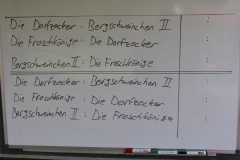 Die Dorfzocker : Bergschweinchen II :
Die Froschkönige : Die Dorfzocker :
Bergschweinchen II : Die Froschkönige :
Die Dorfzocker : Bergschweinchen II :
Die Froschkönige : Die Dorfzocker :
Bergschweinchen II : Die Froschkönige :